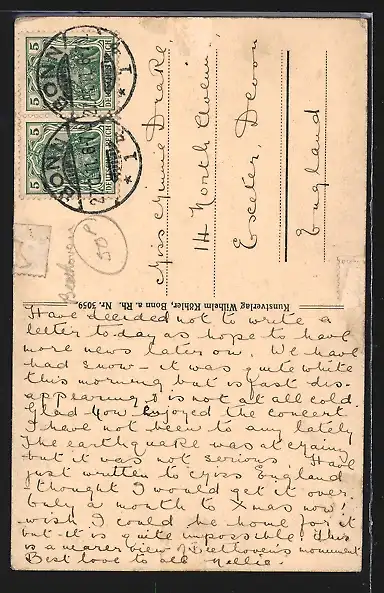 BONN
5 DEUTSCHES REICH 5
BONN
5 DEUTSCHES REICH 5
Miss Minnie Drake,
14 North Avenue
Exeter, Devon
England
Beethoven
50P
Kunstverlag Wilhelm Köhler, Bonn a. Rh. Nr. 3059
Have decided not to write a
letter to-day as hope to have
more news later on. We have
had snow - it was quite white
this morning but is fast dis-
appearing & is not at all cold.
Glad you enjoyed the concert
I have not been to any lately
The earthquake was at
but it was not serious. Have
just written to Miss England
thought I would get it over.
Only a month to Xmas now!
wish I could be home for it
but it is quite impossible. This
is a nearer view of Beethoven's monument
Best love to all Nellie.